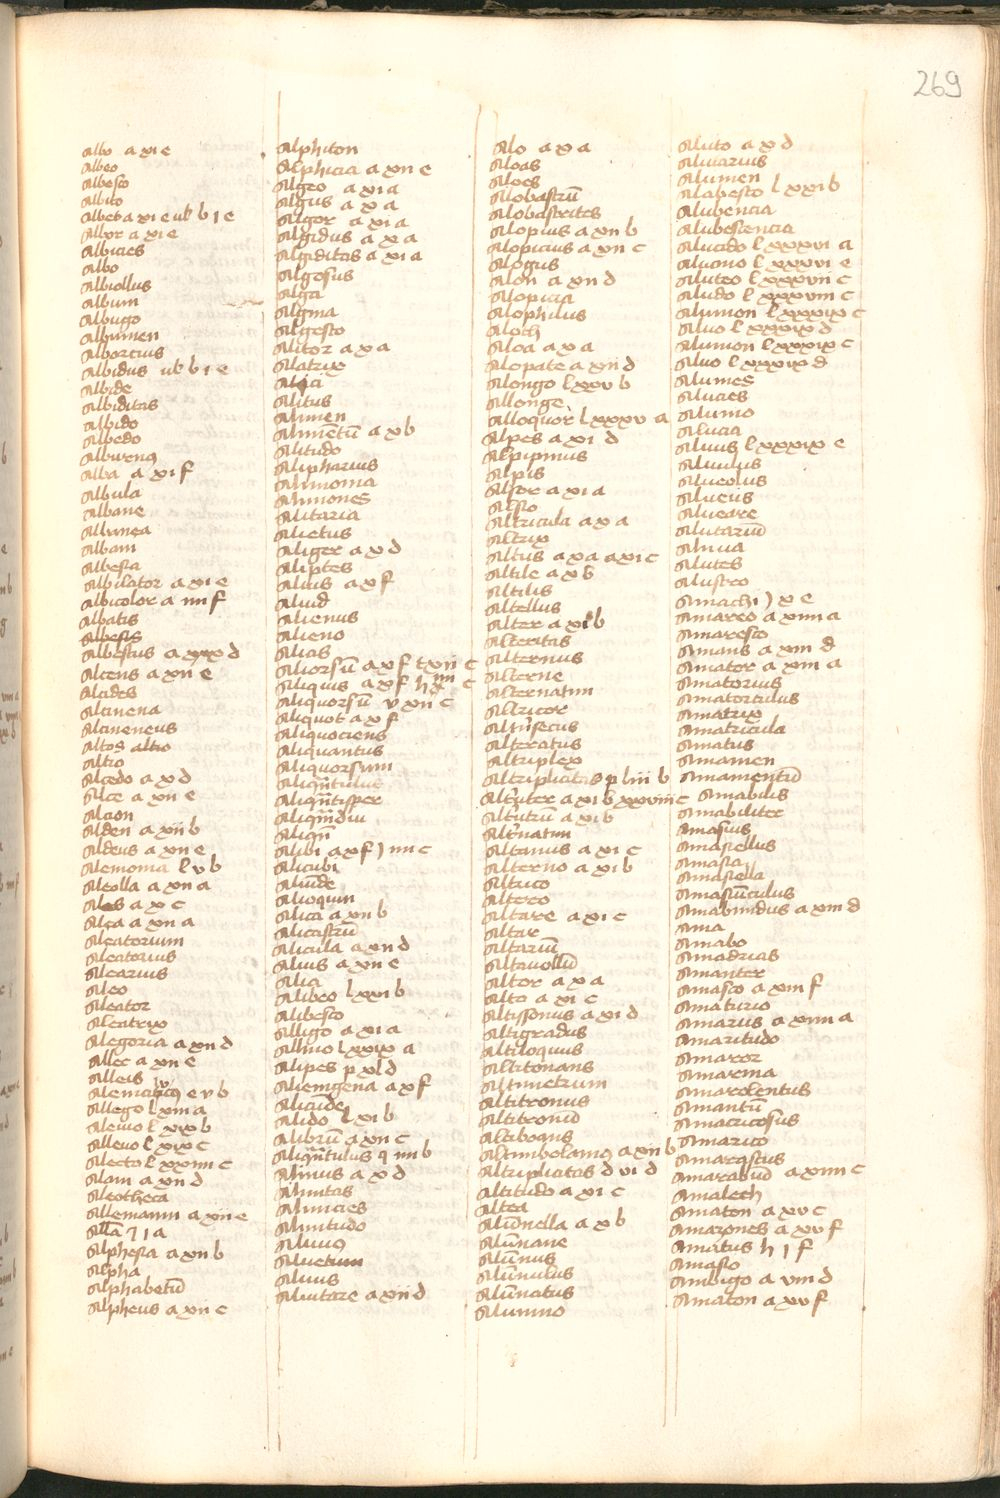 269
albo a xi e
albeo
albesco
albico
albeta a xi e ubi b i e
albor a xi e
albicies
albo
albiollus
album
albugo
albumen
alborcius
albidus ubi b i e
albide
albiditas
albido
albedo
alburenꝰ
alba a xi f
albula
albane
albanea
albam
albesta
albilator a xi e
albicolor a iiii f
albatis
albesis
albestus a xxx d
alcens a xii e
alcides
alcmena
alcmeneus
altos altio
altio
alcedo a x d
alce a xii e
alcion
alden a xii b
aldeus a xii e
alemonia l v b
aleolla a xii a
ales a x c
alea a xii a
aleatorium
aleatorius
alearius
aleo
aleator
aleatrix
alegoria a xii d
allec a xii e
alleis
alleniaticꝰ e v b
allego l xiii a
alleuio l xix b
alleuo l xix c
allecto l xxiiii c
alam a xii d
aleotheca
allemanni a xii e
allia ⁊ i a
alphesia a xii b
alpha
alphabetū
alpheus a xii c
alphiton
alphicia a xii e
algeo a xi a
algus a x a
algor a xi a
algidus a x a
algiditas a xi a
algosus
alga
algina
algesco
alitor a x a
alatrix
alica
alitus
alimen
alimentū a x b
alitudo
alipharius
alimonia
alimones
alitaria
alietus
aliger a x d
aliptes
alius a x f
aliud
alienus
alieno
alias
aliorsū a x f t xii c
aliquis a x f h x iiii c
aliquorsū v xii c
aliquot a x f
aliquociens
aliquantus
aliquorsum
aliqn̄tulus
aliqn̄tisper
aliqn̄diu
aliqn̄
alibi a x f ⁊ iiii c
alicubi
aliūde
alioquin
alica a xii b
alicastrū
alicula a xii d
aliuis a xii e
alia
alibeo l xxi b
alibesco
alligo a xi a
allino l xxix a
alipes p xl d
aliemgena a x f
alicūde
alido l xi b
alibrū a xii c
aliqn̄tulus q iiii b
alinus a x d
alinitas
alinicies
alinitudo
aliuuꝰ
aliuetum
aliuis
aliutare a xii d
alo a x a
aloas
aloes
alobastrū
alobastrites
alopius a xii b
alopicius a xii c
alogus
alon a xii d
alopicia
alophilus
aloth
aloa a x a
alopate a xii d
alongo l xxv b
allonge
alloquor l xxxv a
alpes a xi d
alpipinus
alpis
alsor a xi a
alsio
altricula a x a
altrix
altus a x a a xi c
altile a x b
altilis
altellus
alter a xi b
alteritas
alternus
alterne
alternatim
altricor
altrisecus
alteratus
altriplex
altriplicitas p liii b
altr̄uter a xi b xxviiii c
altr̄utrū a xi b
altr̄natim
altanus a xi c
alterno a xi b
altrico
altero
altare a xi c
altar
altariū
altauollū
altor a x a
alto a xi c
altissonus a xi d
altigradus
altiloquus
altitonans
altimetrum
altitronus
altitroniū
altiboans
altimbolamꝰ a xii b
altriplicitas d vi d
altitudo a xi c
altea
alūnella a x b
alūnane
alūnus
alūnulus
alūnatus
alumino
aluto a x d
alutarius
alumen
alabesco l xxi b
alubencia
alubescencia
alucido l xxxvi a
alucino l xxxvi e
aluteo l xxxvii c
aludo l xxxviii c
alumon l xxxix c
aluo l xxxix d
alumon l xxxix c
aluo l xxxix d
alumes
alucies
alumo
alucia
aluuis l xxxix e
aluulus
alueolus
alueus
alueare
alutariū
alnua
alutes
alustro
amachi ⁊ x e
amareo a xiiii a
amaresco
amans a xiii d
amator a xiii a
amatorius
amatorculus
amatrix
amatricula
amatus
amamen
amamentū
amabilis
amabiliter
amasius
amasiellus
amasia
amasiella
amasiūculus
amabundus a xiii d
ama
amabo
amadrias
amanter
amasco a xiii f
amaturio
amarus a xiiii a
amaritudo
amaror
amarina
amarolentus
amantū
amaricosus
amarico
amarascus
amarabiū a xiiii c
amalech
amaton a xv c
amazones a xv f
amatus h i f
amasio
ambigo a viii d
amaton a xv f